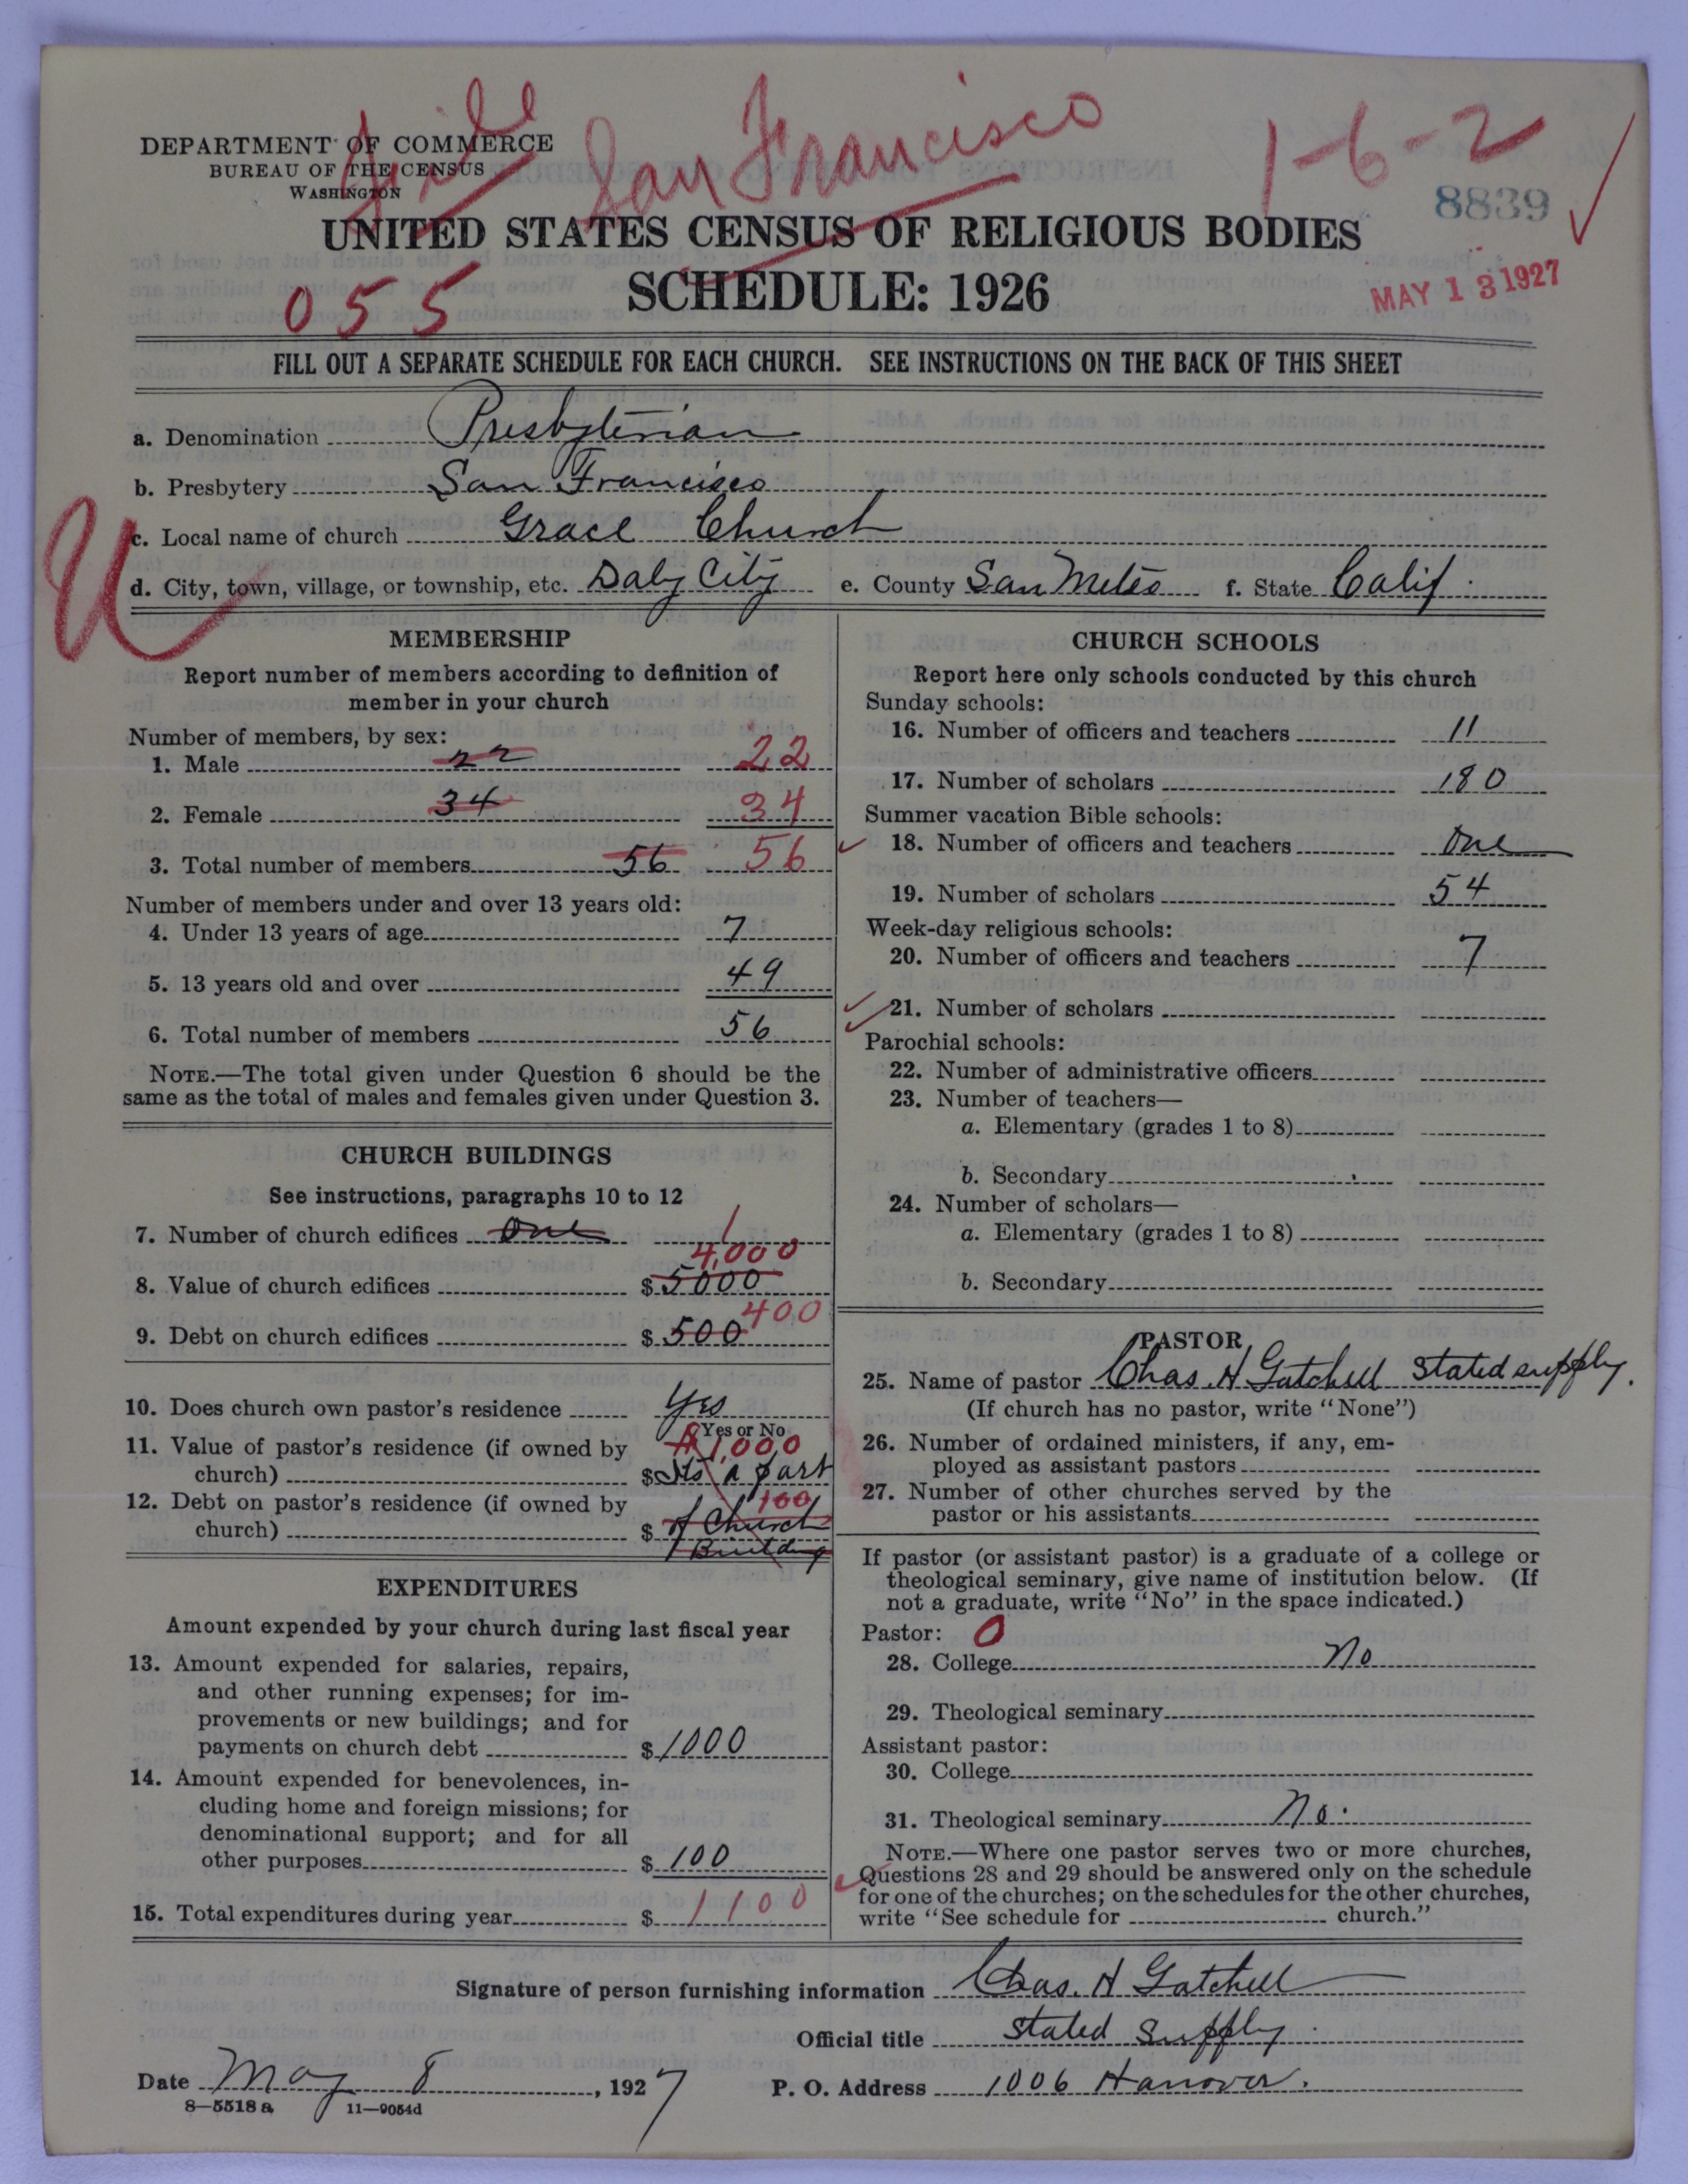 File San Francisco 1-6-2
DEPARTMENT OF COMMERCE
BUREAU OF THE CENSUS
WASHINGTON
8839
UNITED STATES CENSUS OF RELIGIOUS BODIES
SCHEDULE: 1926
055
MAY 13 1927
FILL OUT A SEPARATE SCHEDULE FOR EACH CHURCH. SEE INSTRUCTIONS ON THE BACK OF THIS SHEET
a. Denomination Presbyterian
b. Presbytery San Francisco
c. Local name of church Grace Church
d. City, town, village, or township, etc. Daly City e. County San Mateo f. State Calif.
U
MEMBERSHIP
Report number of members according to definition of
member in your church
Number of members, by sex:
1. Male 22 22
2. Female 34 34
3. Total number of members 56 56
Number of members under and over 13 years old:
4. Under 13 years of age 7
5. 13 years old and over 49
6. Total number of members 56
NOTE.—The total given under Question 6 should be the
same as the total of males and females given under Question 3.
CHURCH BUILDINGS
See instructions, paragraphs 10 to 12
7. Number of church edifices One 1
4,000
8. Value of church edifices $ 5000
400
9. Debt on church edifices $ 500
10. Does church own pastor's residence Yes
Yes or No
11. Value of pastor's residence (if owned by 1,000
church) $ Its a part
12. Debt on pastor's residence (if owned by 100
church) $ of Church
Building
EXPENDITURES
Amount expended by your church during last fiscal year
13. Amount expended for salaries, repairs,
and other running expenses; for im-
provements or new buildings; and for
payments on church debt $ 1000
14. Amount expended for benevolences, in-
cluding home and foreign missions; for
denominational support; and for all
other purposes $ 100
15. Total expenditures during year $ 1100
CHURCH SCHOOLS
Report here only schools conducted by this church
Sunday schools:
16. Number of officers and teachers 11
17. Number of scholars 180
Summer vacation Bible schools:
18. Number of officers and teachers One
19. Number of scholars 54
Week-day religious schools:
20. Number of officers and teachers 7
21. Number of scholars
Parochial schools:
22. Number of administrative officers
23. Number of teachers—
a. Elementary (grades 1 to 8)
b. Secondary
24. Number of scholars—
a. Elementary (grades 1 to 8)
b. Secondary
PASTOR
25. Name of pastor Chas. H Gatchell Stated supply.
(If church has no pastor, write "None")
26. Number of ordained ministers, if any, em-
ployed as assistant pastors
27. Number of other churches served by the
pastor or his assistants
If pastor (or assistant pastor) is a graduate of a college or
theological seminary, give name of institution below. (If
not a graduate, write "No" in the space indicated.)
Pastor: 0
28. College No
29. Theological seminary
Assistant pastor:
30. College
31. Theological seminary No.
NOTE.—Where one pastor serves two or more churches,
Questions 28 and 29 should be answered only on the schedule
for one of the churches; on the schedules for the other churches,
write "See schedule for church."
Signature of person furnishing information Chas. H Gatchell
Official title Stated Supply.
Date May 8, 1927 P. O. Address 1006 Hanover.
8—5518 a 11—9054d